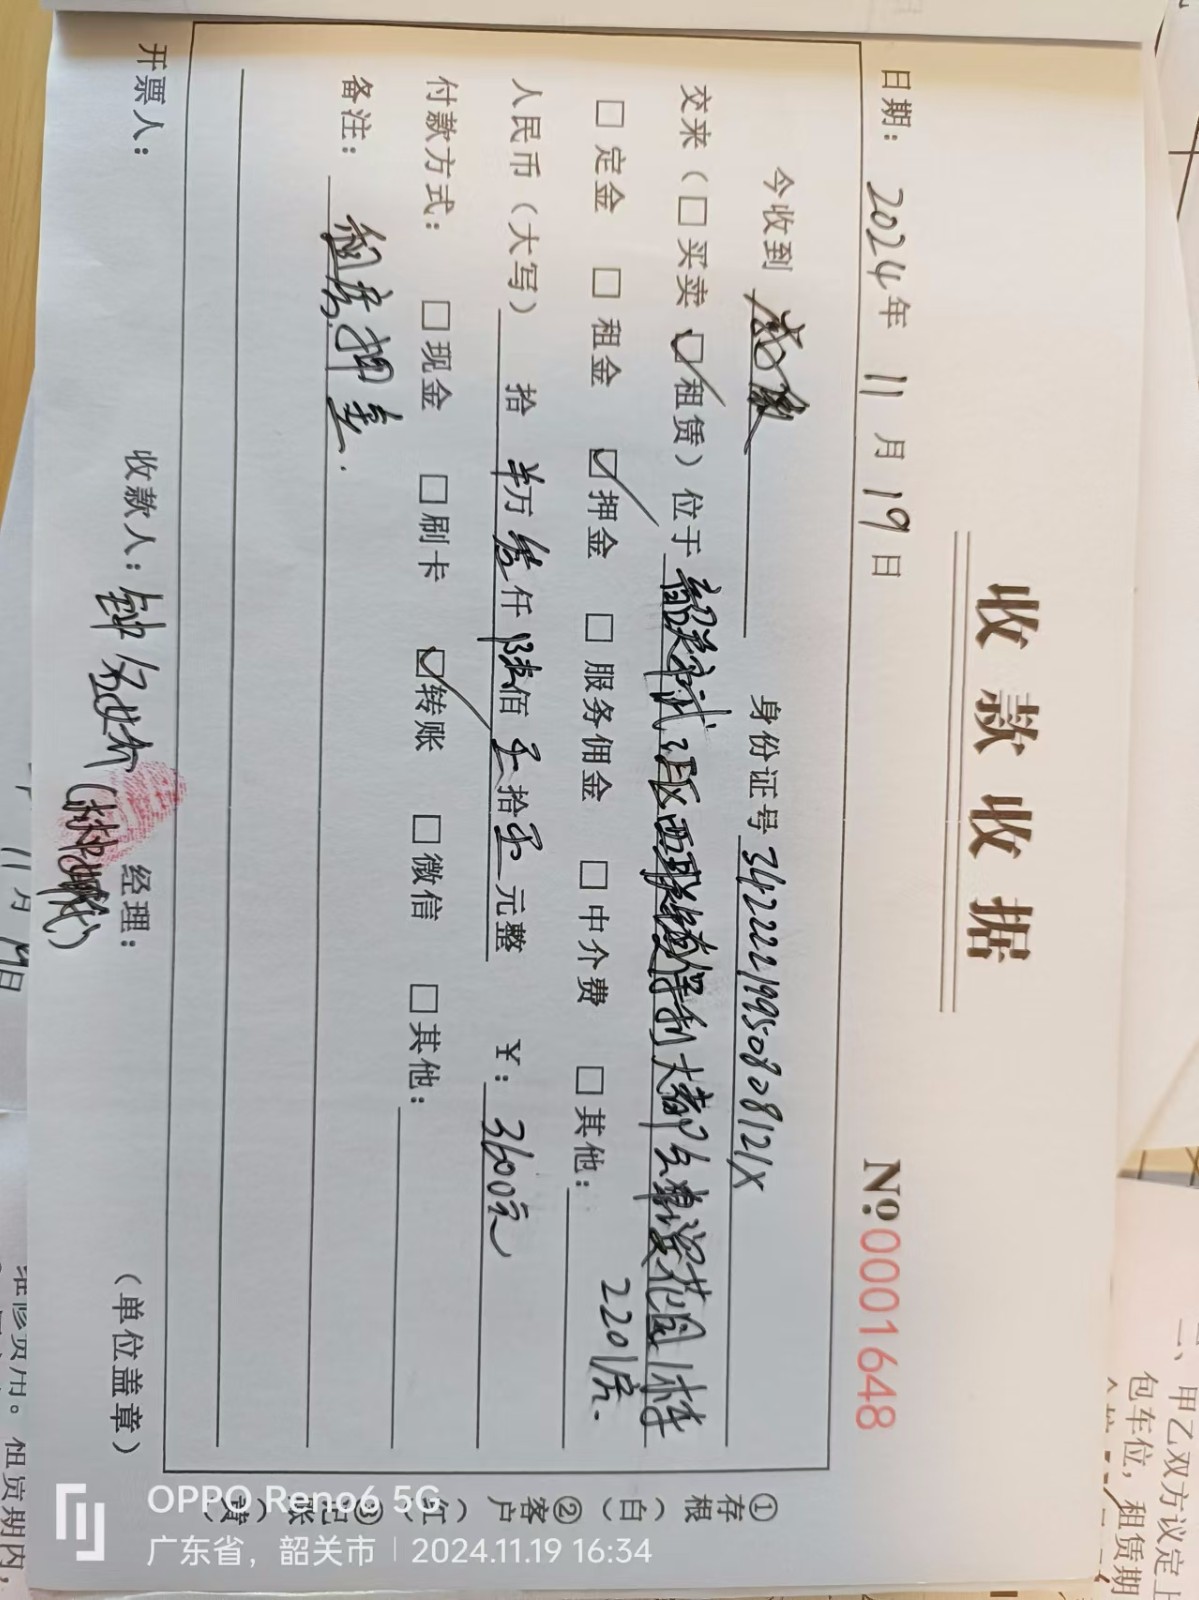 收款收据
日期： 2024年 11 月 19 日 №:0001648
今收到 身份证号 34222219950808121X
交来（□买卖 ☑租赁）位于 韶关市武江区西联镇保利大都会 花园1栋
2201房.
□定金 □租金 ☑押金 □服务佣金 □中介费 □其他：
人民币（大写） 拾 万叁仟陆佰零拾零元整 ￥： 3600元
付款方式： □现金 □刷卡 ☑转账 □微信 □其他：
备注： 租房押金.
开票人： 收款人： 钟 经理： （单位盖章）
①存根（白）②客户（红）③记账（黄）
OPPO Reno6 5G
广东省，韶关市 | 2024.11.19 16:34
二、甲乙双方议定上
包车位，租赁期
11月19日
维修费用。租赁期内，